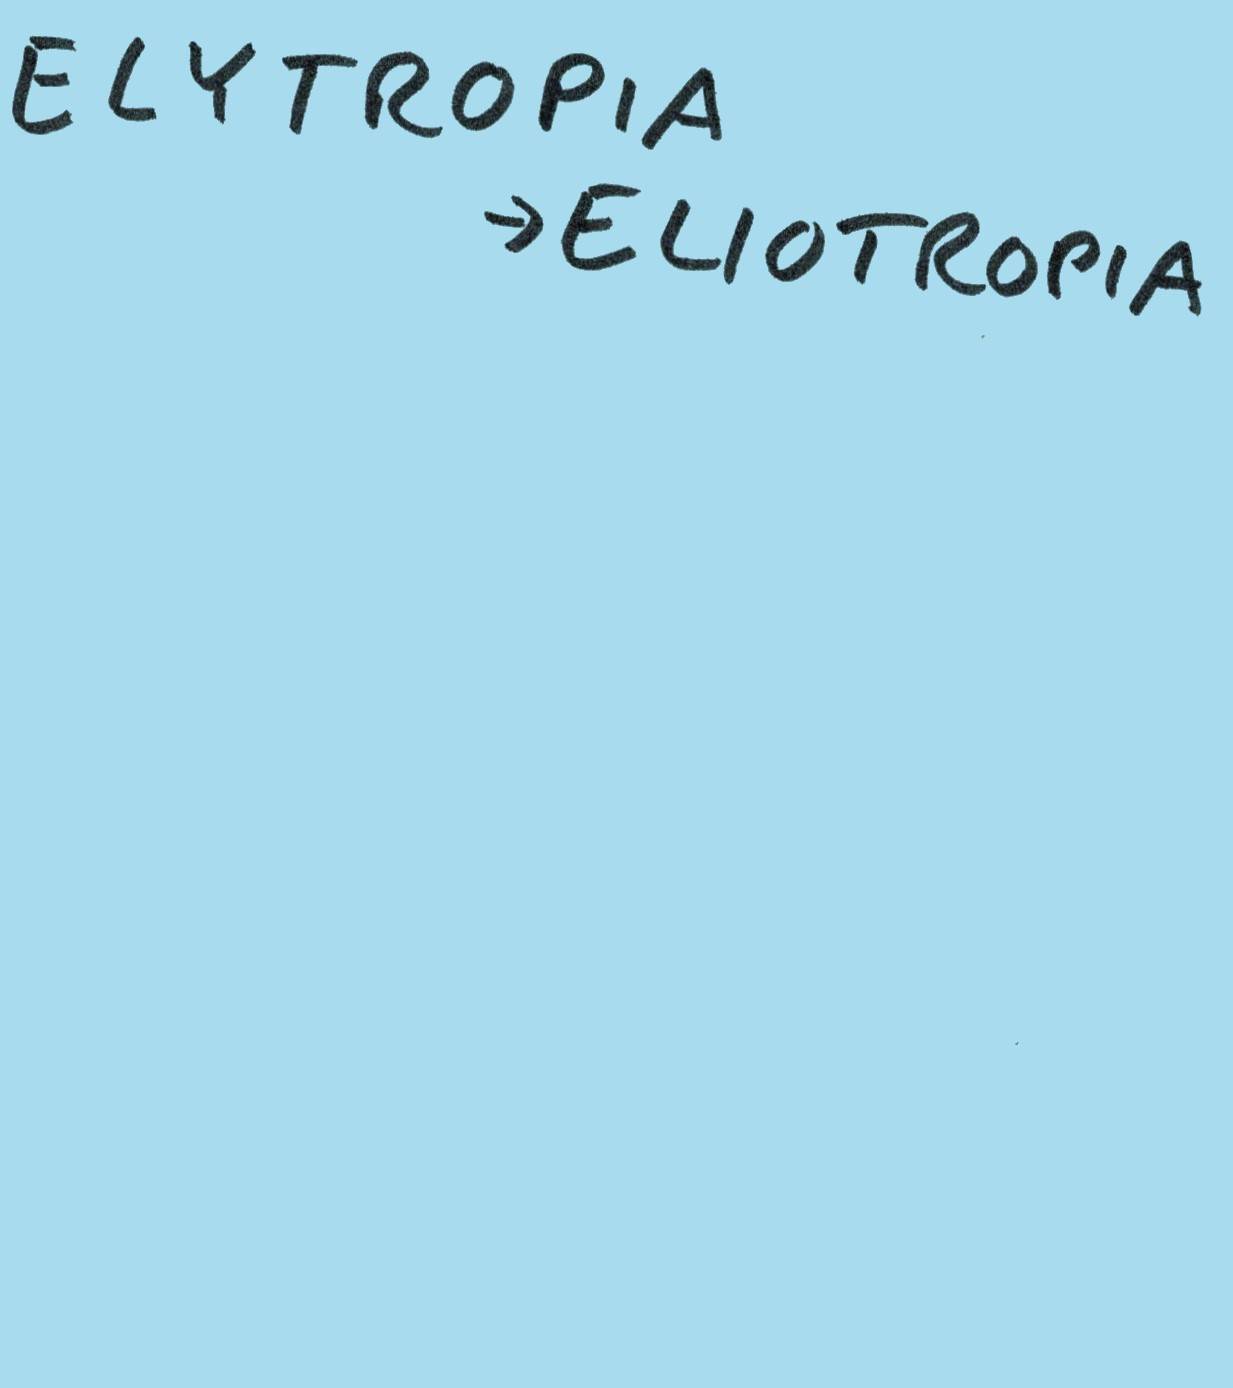 ELYTROPIA
→ELIOTROPIA